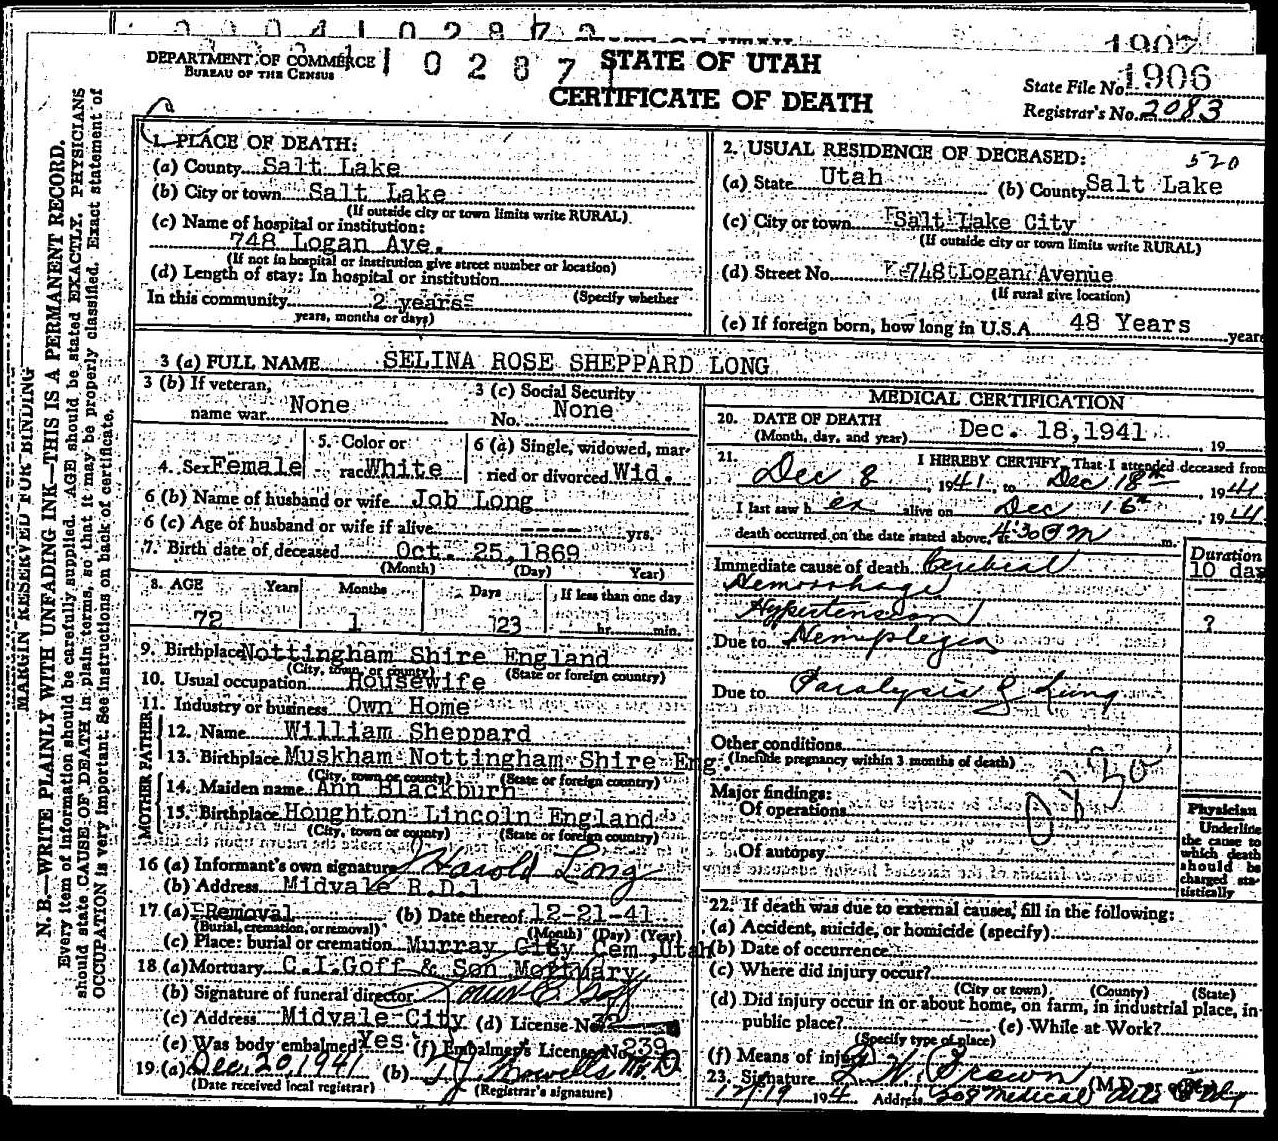 DEPARTMENT OF COMMERCE
BUREAU OF THE CENSUS
1 0 2 8 7 1
STATE OF UTAH
CERTIFICATE OF DEATH
1907
State File No. 1906
Registrar's No. 2083
MARGIN RESERVED FOR BINDING
N. B.—WRITE PLAINLY WITH UNFADING INK—THIS IS A PERMANENT RECORD.
Every item of information should be carefully supplied. AGE should be stated EXACTLY. PHYSICIANS
should state CAUSE OF DEATH in plain terms, so that it may be properly classified. Exact statement of
OCCUPATION is very important. See instructions on back of certificate.
1. PLACE OF DEATH:
(a) County Salt Lake
(b) City or town Salt Lake
(If outside city or town limits write RURAL)
(c) Name of hospital or institution:
748 Logan Ave.
(If not in hospital or institution give street number or location)
(d) Length of stay: In hospital or institution
In this community 2 years (Specify whether
years, months or days)
2. USUAL RESIDENCE OF DECEASED: 520
(a) State Utah (b) County Salt Lake
(c) City or town Salt Lake City
(If outside city or town limits write RURAL)
(d) Street No. 748 Logan Avenue
(If rural give location)
(e) If foreign born, how long in U.S.A. 48 Years years
3 (a) FULL NAME SELINA ROSE SHEPPARD LONG
3 (b) If veteran, name war None
3 (c) Social Security No. None
4. Sex Female
5. Color or race White
6 (a) Single, widowed, married or divorced Wid.
6 (b) Name of husband or wife Job Long
6 (c) Age of husband or wife if alive ---- yrs.
7. Birth date of deceased Oct. 25, 1869
(Month) (Day) Year)
8. AGE Years Months Days If less than one day
72 1 23 hr. min.
9. Birthplace Nottingham Shire England
(City, town or county) (State or foreign country)
10. Usual occupation Housewife
11. Industry or business Own Home
FATHER
12. Name William Sheppard
13. Birthplace Muskham Nottingham Shire Eng.
(City, town or county) (State or foreign country)
MOTHER
14. Maiden name Ann Blackburn
15. Birthplace Houghton Lincoln England
(City, town or county) (State or foreign country)
16 (a) Informant's own signature J Harold Long
(b) Address Midvale R.D.1
17. (a) Removal (b) Date thereof 12-21-41
(Burial, cremation, or removal) (Month) (Day) (Year)
(c) Place: burial or cremation Murray City Cem., Utah
18 (a) Mortuary C.I. Goff & Son Mortuary
(b) Signature of funeral director
(c) Address Midvale City (d) License No.
(e) Was body embalmed? Yes (f) Embalmer's License No. 239
19. (a) Dec. 20, 1941 (b) M.D.
(Date received local registrar) (Registrar's signature)
MEDICAL CERTIFICATION
20. DATE OF DEATH
(Month, day, and year) Dec. 18, 1941 19
21. I HEREBY CERTIFY, That I attended deceased from
Dec 8, 1941, to Dec 18th, 1941
I last saw h er alive on Dec 16th, 194
death occurred on the date stated above, at 4:30 P m m.
Duration
Immediate cause of death Cerebral 10 day
Hemorrhage
Hypertension ?
Due to Hemiplegia
Due to Paralysis of Lung
Other conditions
(Include pregnancy within 3 months of death)
Major findings:
Of operations
Of autopsy
Physician
Underline
the cause to
which death
should be
charged sta-
tistically
22. If death was due to external causes, fill in the following:
(a) Accident, suicide, or homicide (specify)
(b) Date of occurrence
(c) Where did injury occur?
(City or town) (County) (State)
(d) Did injury occur in or about home, on farm, in industrial place, in
public place? (e) While at Work?
(Specify type of place)
(f) Means of injury
23. Signature (M.D.
12/19 194 Address 208 Medical Arts